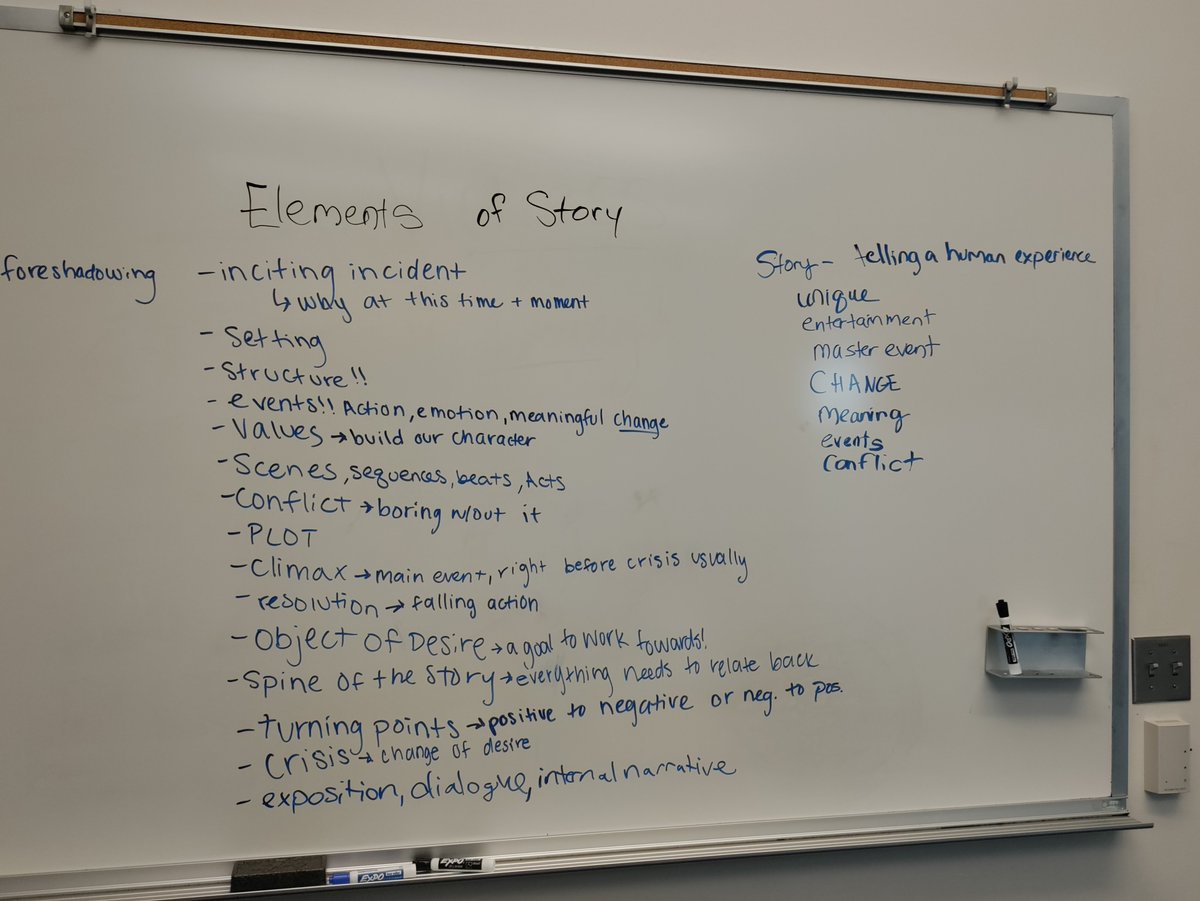 Elements of Story
foreshadowing
- inciting incident
↳ why at this time + moment
- Setting
- Structure!!
- events!! Action, emotion, meaningful change
- Values → build our character
- Scenes, sequences, beats, Acts
- Conflict → boring w/out it
- PLOT
- Climax → main event, right before crisis usually
- resolution → falling action
- Object of Desire → a goal to work towards!
- Spine of the Story → everything needs to relate back
- turning points → positive to negative or neg. to pos.
- Crisis → change of desire
- exposition, dialogue, internal narrative
Story - telling a human experience
unique
entertainment
master event
CHANGE
Meaning
events
Conflict
EXPO
EXPO